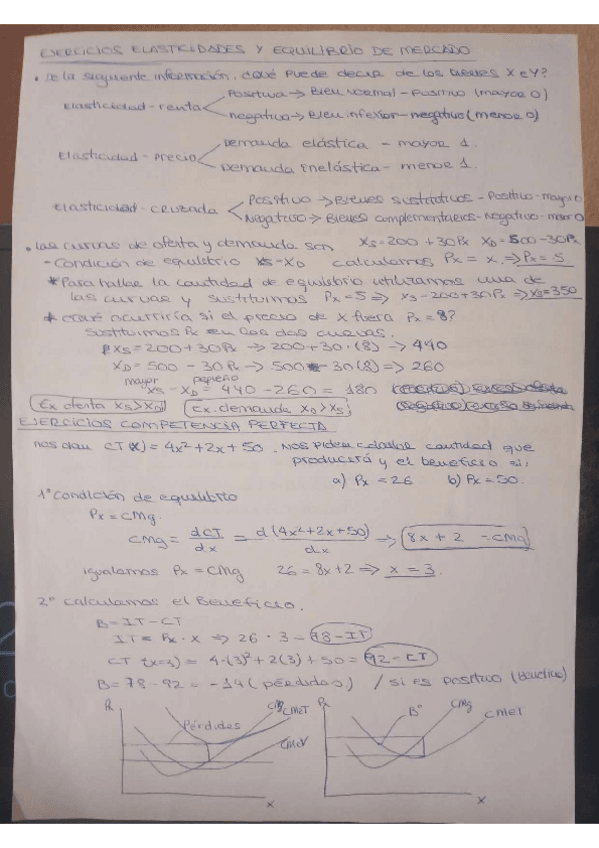 EJERCICIOS ELASTICIDADES Y EQUILIBRIO DE MERCADO
• De la siguiente información, ¿qué puede decir de los bienes X e Y?
Elasticidad-renta
Positiva → Bien normal - Positivo (mayor 0)
negativa → Bien inferior - negativo (menor 0)
Elasticidad-precio
Demanda elástica - mayor 1.
Demanda Inelástica - menor 1.
Elasticidad-cruzada
Positivo → Bienes sustitutivos - Positivo - mayor 0
Negativo → Bienes complementarios - Negativo -
• Las curvas de oferta y demanda son Xs=200+30Px XD=500-30Px
- Condición de equilibrio Xs-XD calculamos Px = x. ⇒ Px = 5
* Para hallar la cantidad de equilibrio utilizamos una de
las curvas y sustituimos Px=5 ⇒ Xs-200+30Px ⇒ Xs=350
* ¿Qué ocurriría si el precio de X fuera Px=8?
Sustituimos Px en las dos curvas.
Xs=200+30Px → 200+30·(8) → 440
XD=500-30Px → 500-30(8) ⇒ 260
mayor pequeño
Xs - XD = 440-260 = 180
Ex oferta Xs>XD Ex. demanda XD>Xs
EJERCICIOS COMPETENCIA PERFECTA
nos dan CT(x)=4x²+2x+50. Nos piden calcular cantidad que
producirá y el beneficio si:
a) Px=26 b) Px=50.
1º Condición de equilibrio
Px=CMg.
CMg = dCT/dx = d(4x²+2x+50)/dx ⇒ 8x+2 -CMg
igualamos Px=CMg 26=8x+2 ⇒ x=3.
2º calculamos el Beneficio.
B=IT-CT
IT= Px·x ⇒ 26·3 - 78-IT
CT (x=3) = 4·(3)²+2(3)+50= 92-CT
B=78-92=-14 (pérdidas) / si es positivo (beneficio)
Px CMg CMeT Px CMg CMeT
Pérdidas Bº
CMeV
x x